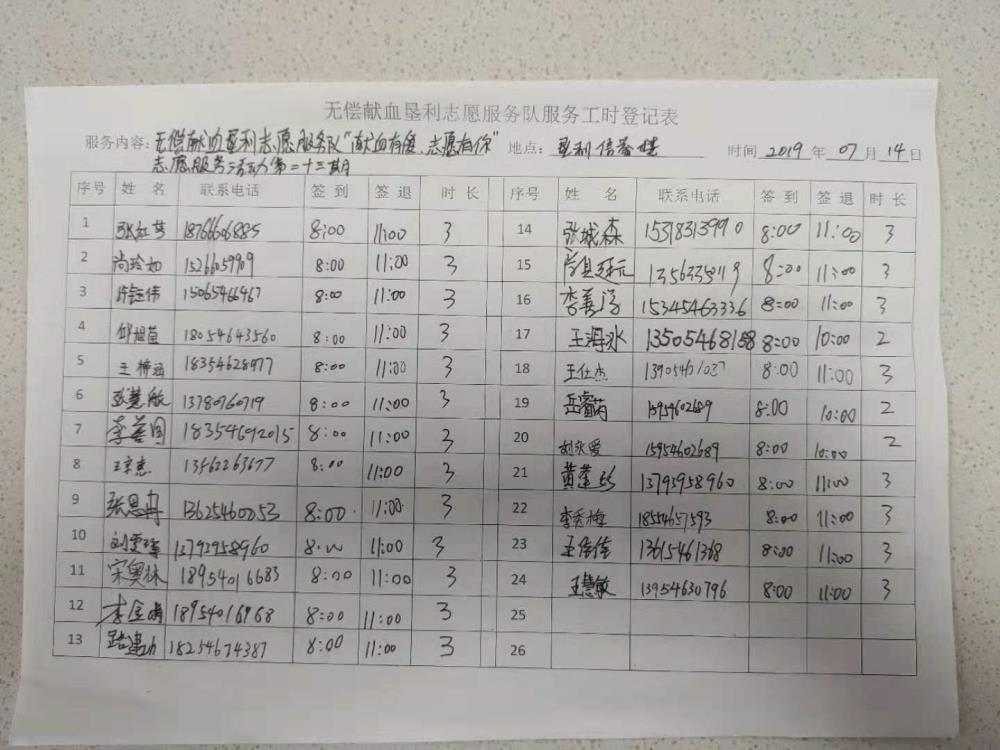 无偿献血垦利志愿服务队服务工时登记表
服务内容: 无偿献血垦利志愿服务队"献血有爱,志愿有你" 地点: 垦利信誉楼 时间 2019 年 07 月 14 日
志愿服务活动第二十三期
序号 姓 名 联系电话 签 到 签 退 时 长 序号 姓 名 联系电话 签 到 签 退 时 长
1 18766606885 8:00 11:00 3 14 张城森 15318313990 8:00 11:00 3
2 尚玲如 15266059909 8:00 11:00 3 15 8:00 11:00 3
3 15065466467 8:00 11:00 3 16 李善学 15345463336 8:00 11:00 3
4 邱旭苗 18054643560 8:00 11:00 3 17 王海冰 13505468158 8:00 10:00 2
5 王 18354628977 8:00 11:00 3 18 王仕杰 8:00 11:00 3
6 张慧敏 13780760719 8:00 11:00 3 19 岳睿芮 15954602689 8:00 10:00 2
7 李善国 18354692015 8:00 11:00 3 20 刘永爱 15954602689 8:00 10:00 2
8 13562263677 8:00 11:00 3 21 黄蓬丝 13793958960 8:00 11:00 3
9 张恩冉 13625460053 8:00 11:00 3 22 李秀梅 18554657593 8:00 11:00 3
10 刘雯 13792958960 8:00 11:00 3 23 王倩倩 13615461368 8:00 11:00 3
11 宋奥林 18954016683 8:00 11:00 3 24 王慧敏 13954630796 8:00 11:00 3
12 李金娟 18954016968 8:00 11:00 3 25
13 路建功 18254674387 8:00 11:00 3 26